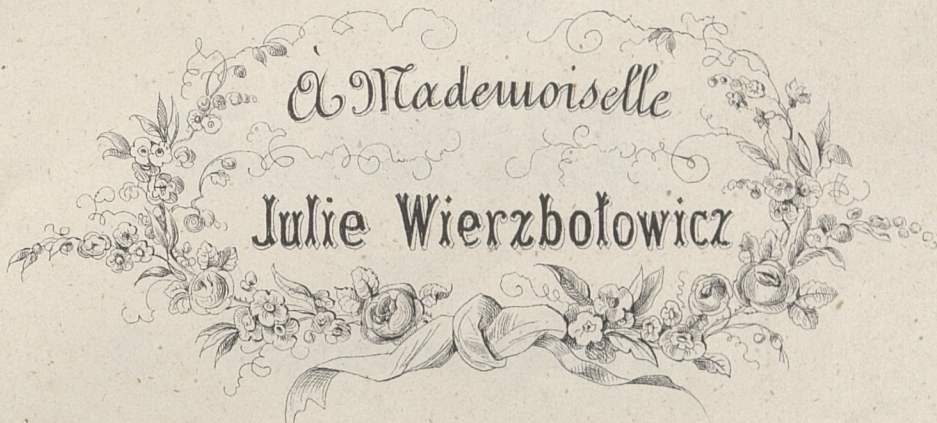 À Mademoiselle
Julie Wierzbołowicz